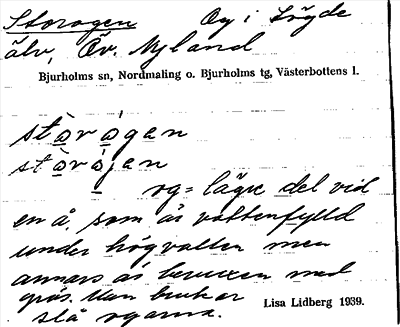 Storogen Og i Lögde
älv, Öv. Nyland
Bjurholms sn, Nordmaling o. Bjurholms tg, Västerbottens l.
stòrógen
stòrójen
og = lägre del vid
en å, som är vattenfylld
under högvatten men
annars är beväxen med
gräs. Man brukar
slå ogarna.
Lisa Lidberg 1939.